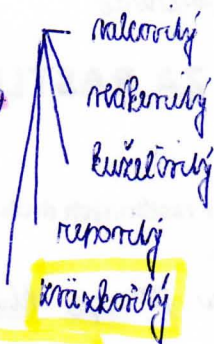 valcovitý
vretenovitý
kužeľovitý
repovitý
zväzkovitý